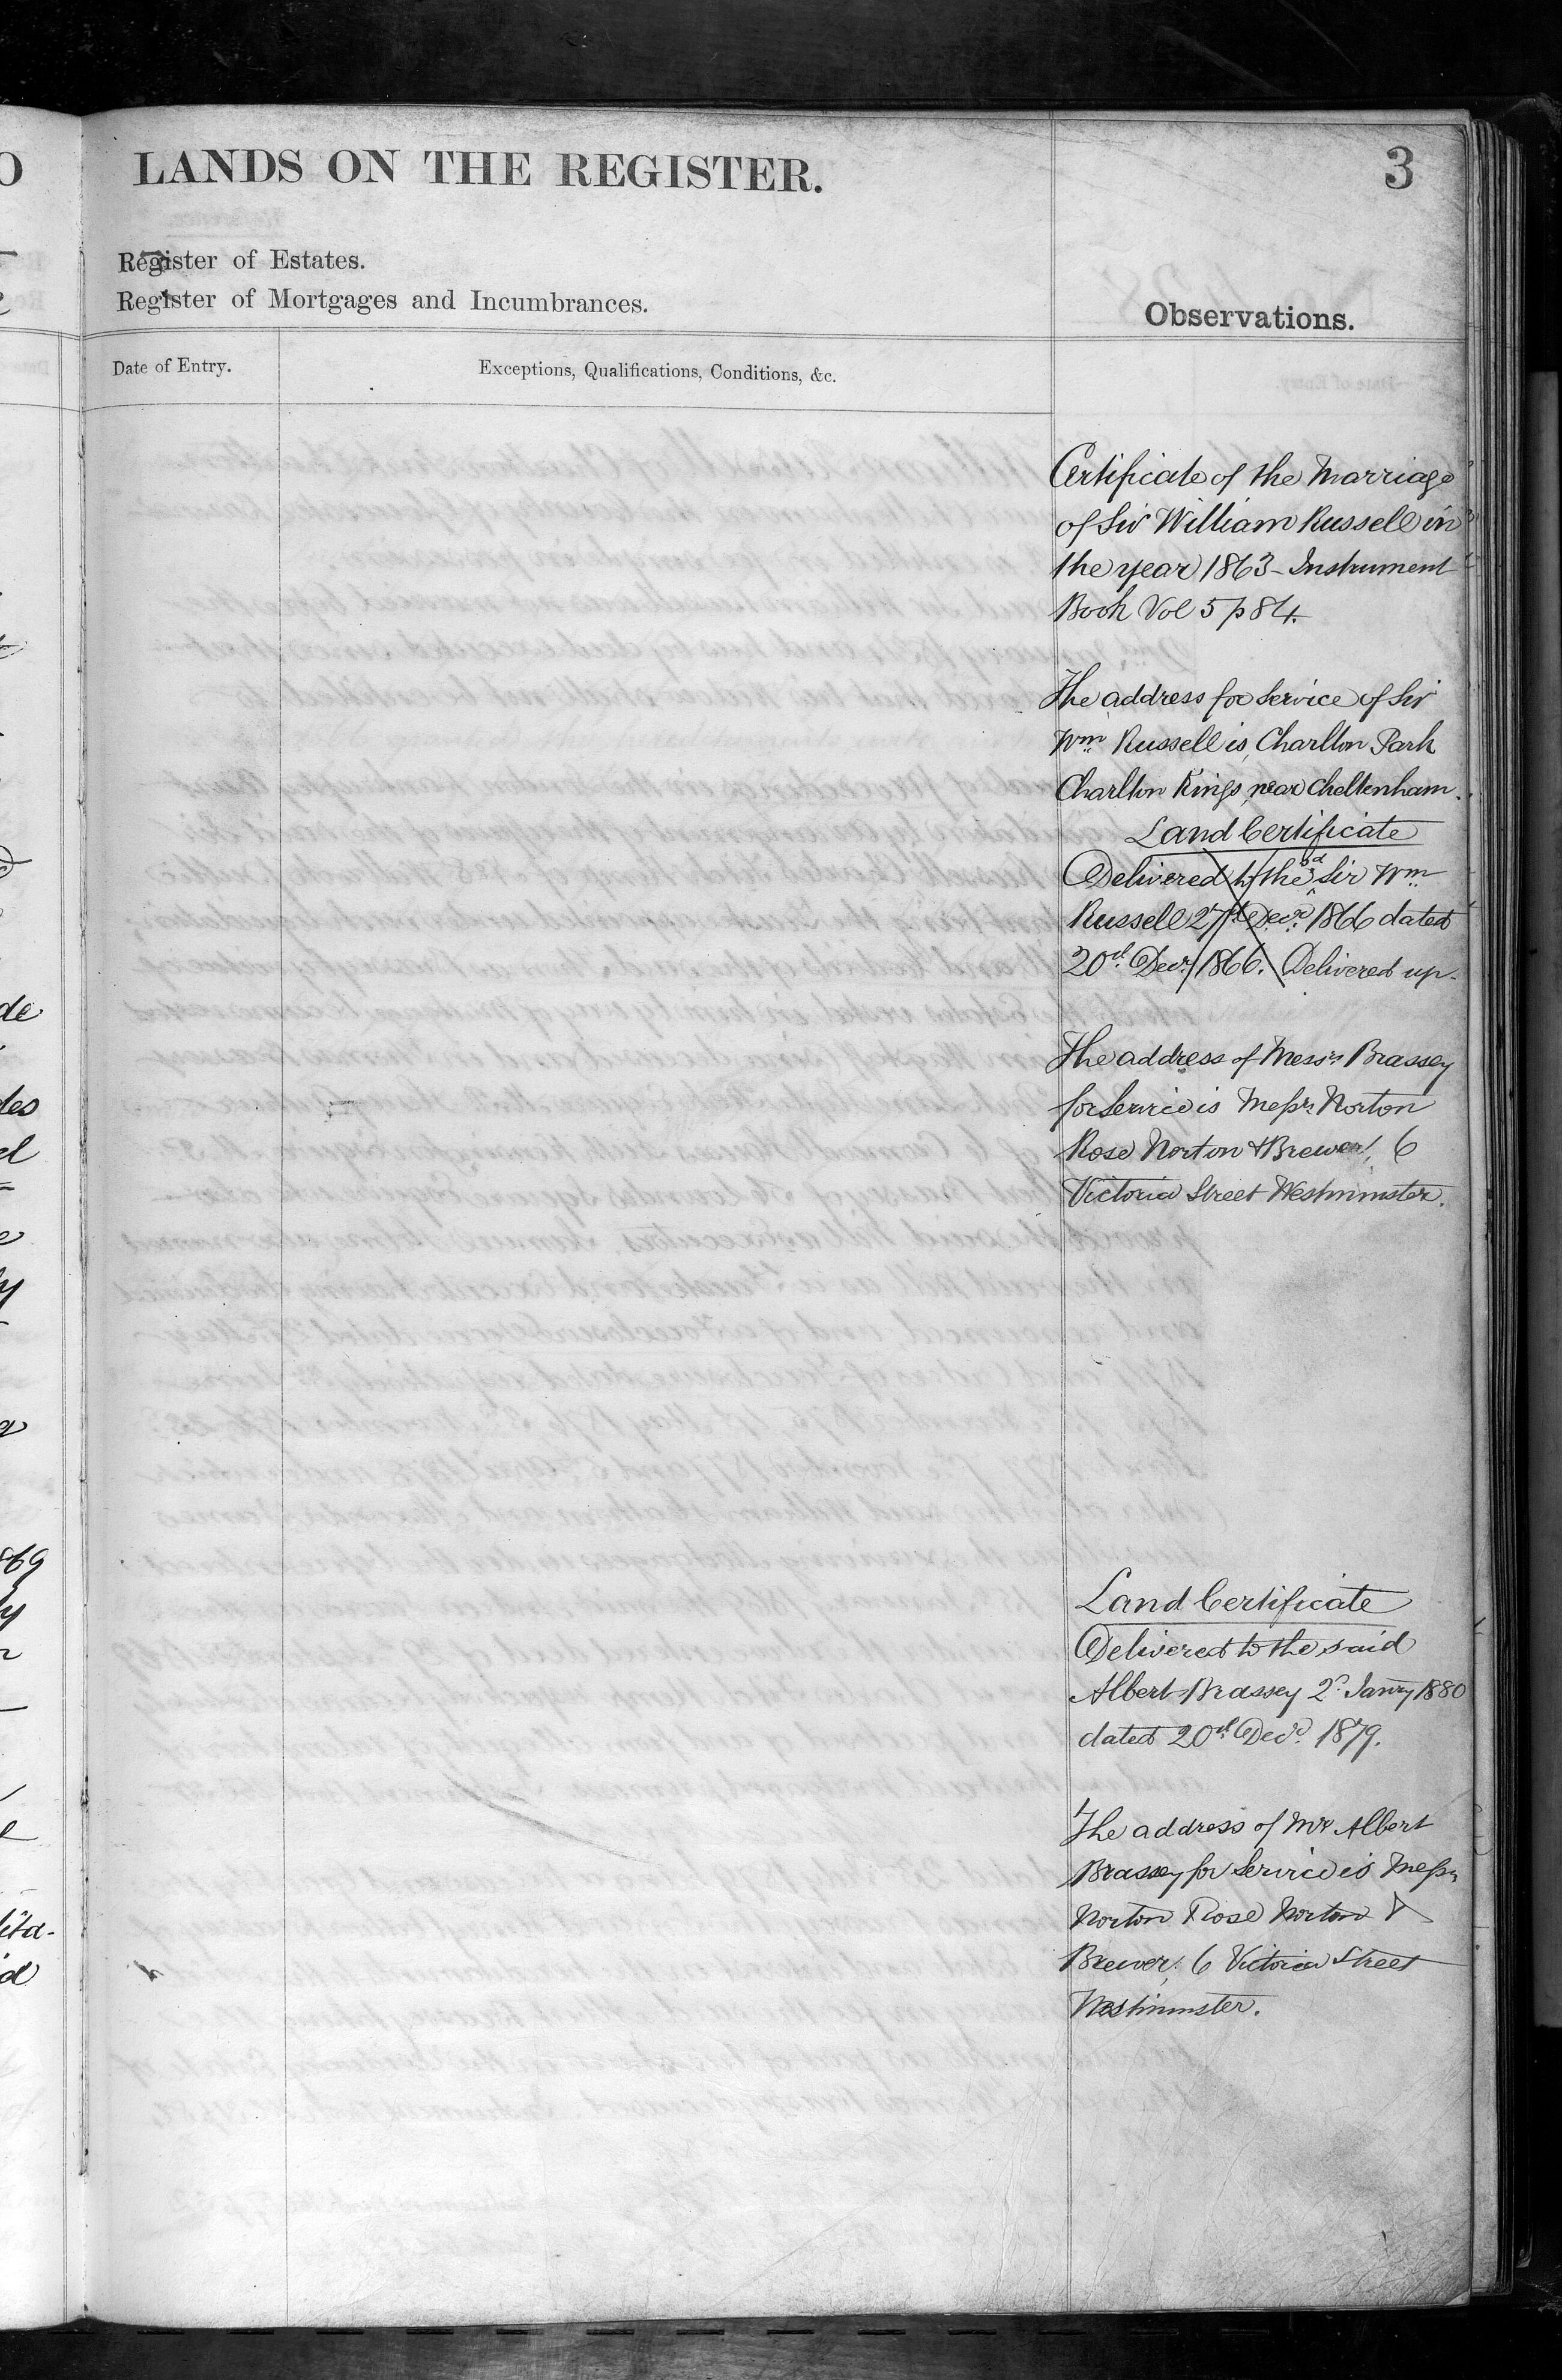 LANDS ON THE REGISTER.
3
Register of Estates.
Register of Mortgages and Incumbrances.
Observations.
Date of Entry.
Exceptions, Qualifications, Conditions, &c.
Certificate of the Marriage
of Sir William Russell in
the year 1863 - Instrument
Book Vol 5 p 84.
The address for Service of Sir
Wm Russell is, Charlton Park
Charlton Kings, near Cheltenham.
Land Certificate
Delivered to the sd Sir Wm
Russell 27th Decr 1866 dated
20th Decr 1866. Delivered up.
The address of Messrs Brassey
for Service is Messrs Norton
Rose Norton & Brewer, 6
Victoria Street Westminster.
Land Certificate
Delivered to the said
Albert Brassey 2d Janry 1880
dated 20th Decr 1879.
The address of Mr Albert
Brassey for Service is Messrs
Norton Rose Norton &
Brewer, 6 Victoria Street
Westminster.